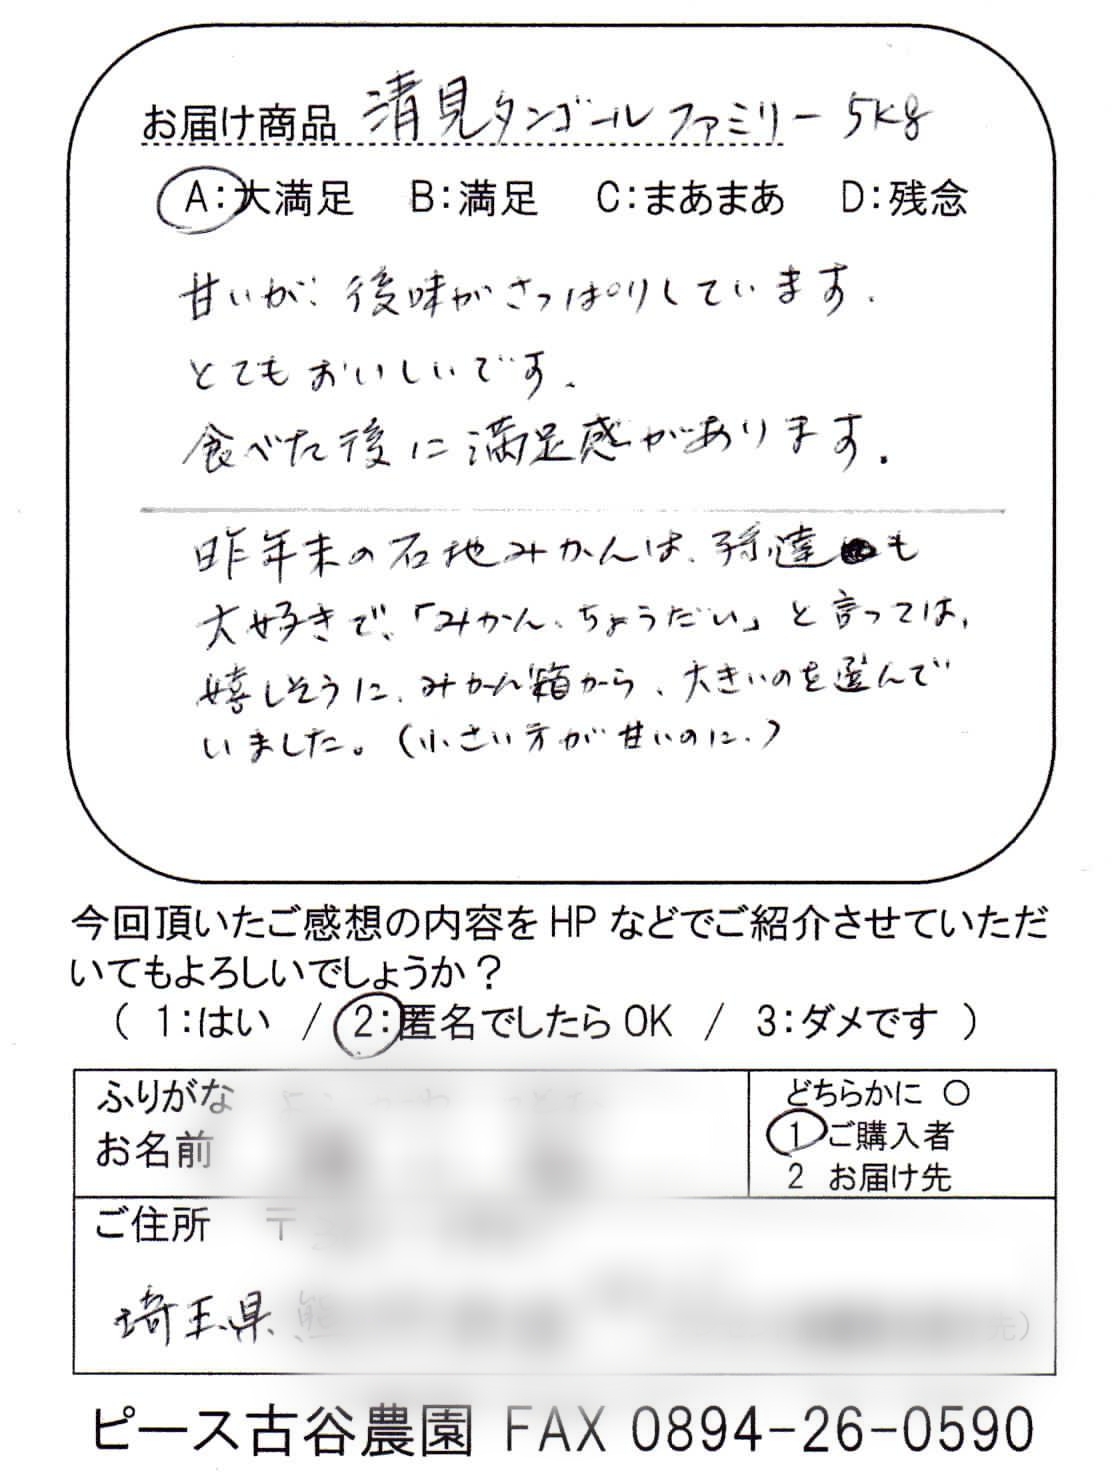 お届け商品 清見タンゴール ファミリー 5kg
A：大満足 B：満足 C：まあまあ D：残念
甘いが、後味がさっぱりしています。
とてもおいしいです。
食べた後に満足感があります。
昨年末の石地みかんは、孫達も
大好きで、「みかん、ちょうだい」と言っては、
嬉しそうに、みかん箱から、大きいのを選んで
いました。（小さい方が甘いのに、）
今回頂いたご感想の内容を HP などでご紹介させていただ
いてもよろしいでしょうか？
（ 1：はい / 2：匿名でしたら OK / 3：ダメです ）
ふりがな
お名前
どちらかに ○
1 ご購入者
2 お届け先
ご住所 〒
埼玉県
ピース古谷農園 FAX 0894-26-0590